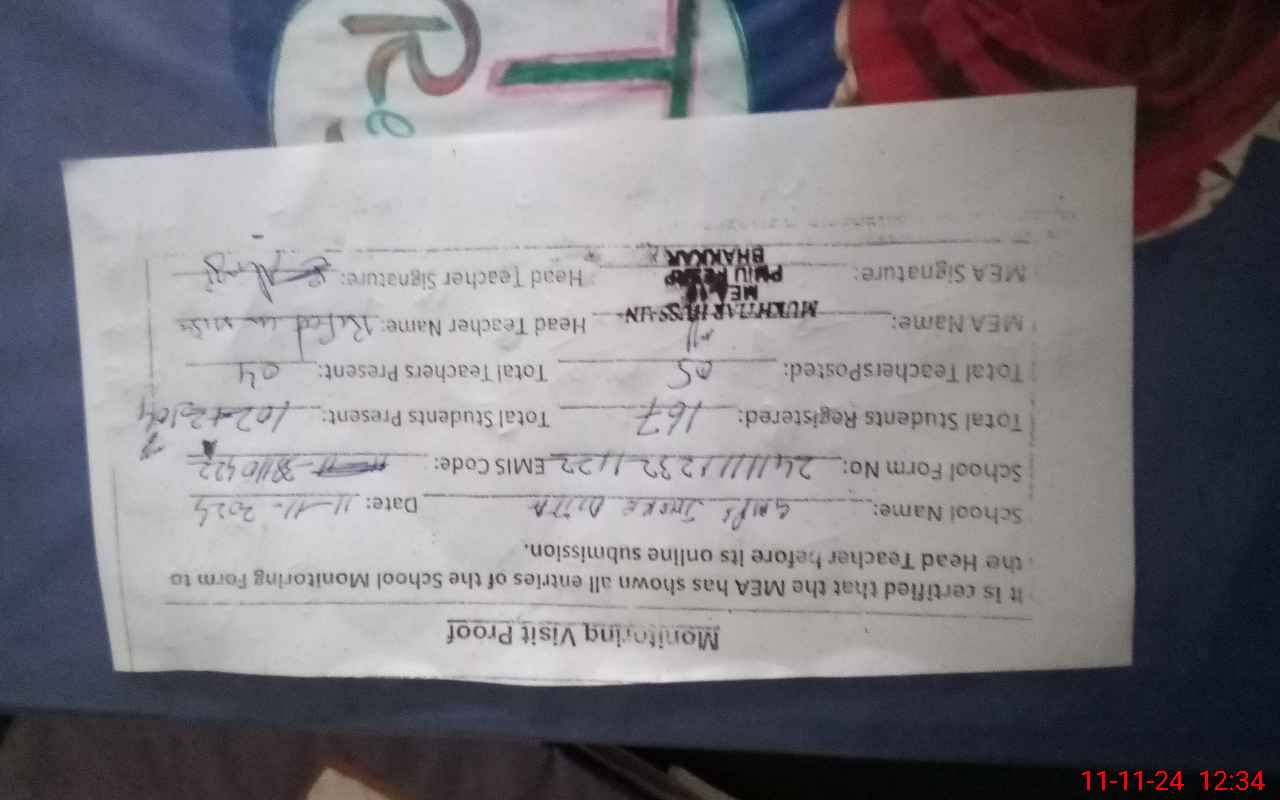 Monitoring Visit Proof
It is certified that the MEA has shown all entries of the School Monitoring Form to
the Head Teacher before Its online submission.
School Name: GMPS Date: 11-11-2024
School Form No: EMIS Code: 38110422
Total Students Registered: 167 Total Students Present: 102+2=104
Total TeachersPosted: 05 Total Teachers Present: 04
MEA Name: MUKHTIAR HUSSAIN Head Teacher Name:
MEA
PMIU
BHAKKAR
MEA Signature: Head Teacher Signature:
Re
11-11-24 12:34